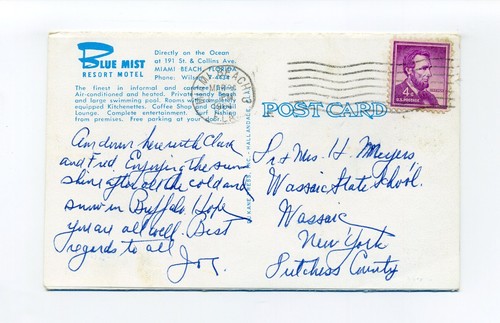 BLUE MIST
RESORT MOTEL
Directly on the Ocean
at 191 St. & Collins Ave.
MIAMI BEACH, FLORIDA
Phone: Wilson
The finest in informal and
Air-conditioned and heated. Private sandy
and large swimming pool. Rooms with
equipped Kitchenettes. Coffee Shop and
Lounge. Complete entertainment. fishing
from premises. Free parking at your door.
POST CARD
4¢
U.S. POSTAGE
Am down here with Clark
and Fred. Enjoying the sun
shine after all the cold and
snow in Buffalo. Hope
you are all well. Best
regards to all
Joy.
Dr & Mrs. H. Meyers
Wassaic State School.
Wassaic
New York
Dutchess County